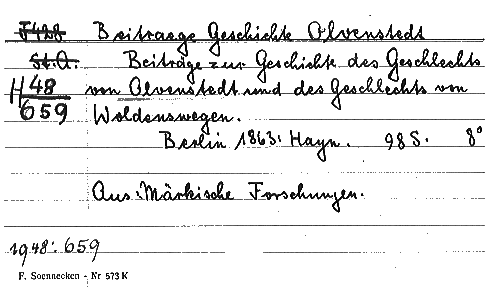 F428 Beitraege Geschichte Olvenstedt
St.A. Beiträge zur Geschichte des Geschlechts
H 48 von Olvenstedt und des Geschlechts von
659 Woldenswegen.
Berlin 1863: Hayn. 98 S. 8°
Aus: Märkische Forschungen.
1948: 659
F. Soennecken - Nr 573 K